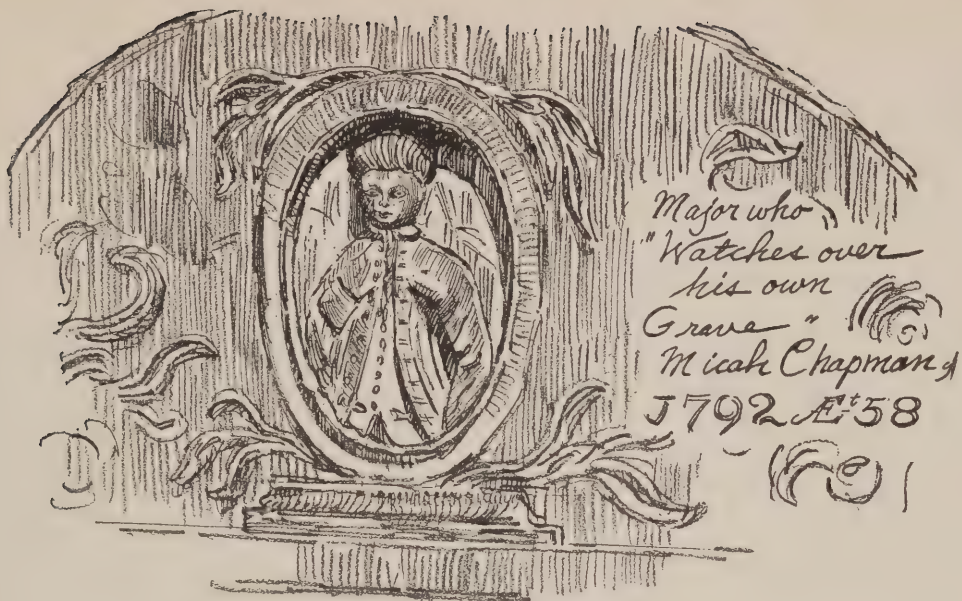 Major who
"Watches over
his own
Grave"
Micah Chapman
J792 Æt 58